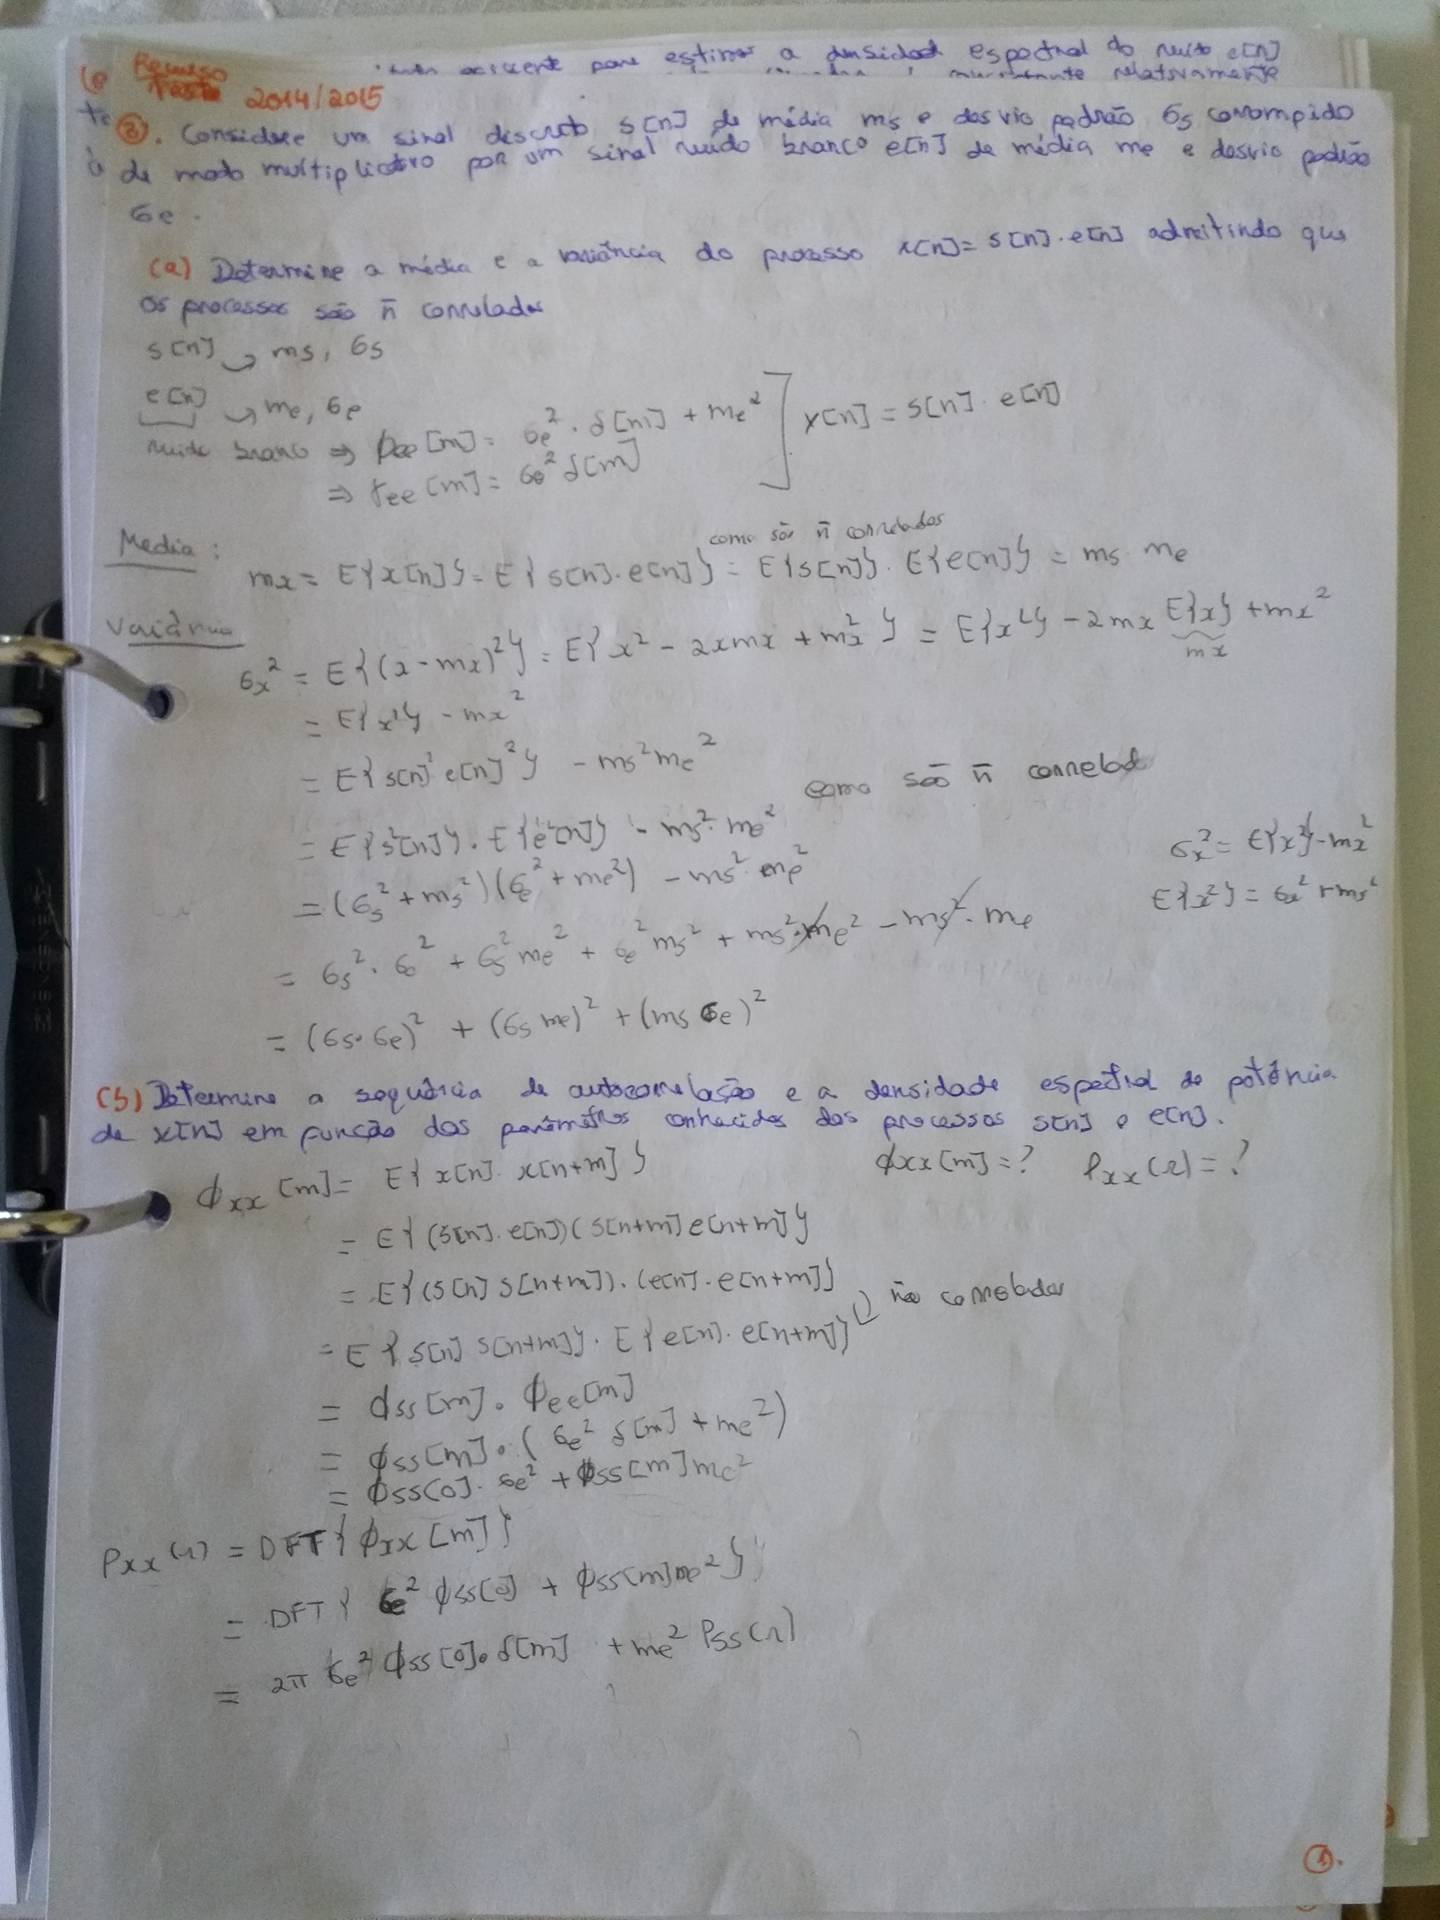 para estimar a densidade espectral do ruido e[n]
relativamente
Recurso
Teste 2014/2015
③. Considere um sinal discreto s[n] de média ms e desvio padrão σs corrompido
de modo multiplicativo por um sinal ruído branco e[n] de média me e desvio padrão
σe.
(a) Determine a média e a variância do processo x[n]= s[n]·e[n] admitindo que
os processos são ñ correlados
s[n] → ms, σs
e[n] → me, σe
ruido branco ⇒ ϕee[m] = σe²·δ[m] + me² ] x[n] = s[n]·e[n]
⇒ γee[m] = σe² δ[m]
como são ñ correlados
Media: mx = E{x[n]} = E{s[n]·e[n]} = E{s[n]}·E{e[n]} = ms me
Variância σx² = E{(x-mx)²} = E{x² - 2xmx + mx²} = E{x²} - 2mx E{x} + mx²
mx
= E{x²} - mx²
= E{s[n]² e[n]²} - ms² me²
como são ñ correlad
= E{s²[n]}·E{e²[n]} - ms²·me²
σx² = E{x²}-mx²
= (σs² + ms²)(σe² + me²) - ms² me²
E{x²} = σx² + ms²
= σs²·σe² + σs² me² + σe² ms² + ms²·me² - ms²·me
= (σs·σe)² + (σs me)² + (ms σe)²
(b) Determine a sequência de autocorrelação e a densidade espectral de potência
de x[n] em função dos parâmetros conhecidos dos processos s[n] e e[n].
ϕxx[m] = E{x[n]·x[n+m]} ϕxx[m] = ? Pxx(Ω) = ?
= E{(s[n]·e[n])(s[n+m]e[n+m]}
= E{(s[n] s[n+m])·(e[n]·e[n+m]}
não correlados
= E{s[n] s[n+m]}·E{e[n]·e[n+m]}
= ϕss[m]·ϕee[m]
= ϕss[m]·(σe² δ[m] + me²)
= ϕss[0]·σe² + ϕss[m]me²
Pxx(Ω) = DFT{ϕxx[m]}
= DFT{σe² ϕss[0] + ϕss[m]me²}
= 2π σe² ϕss[0]·δ[m] + me² Pss(Ω)
①.